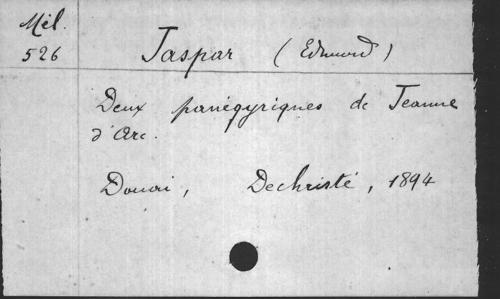 Mél.
526
Jaspar (Edmond)
Deux panégyriques de Jeanne
d'Arc.
Douai, Dechristé, 1894